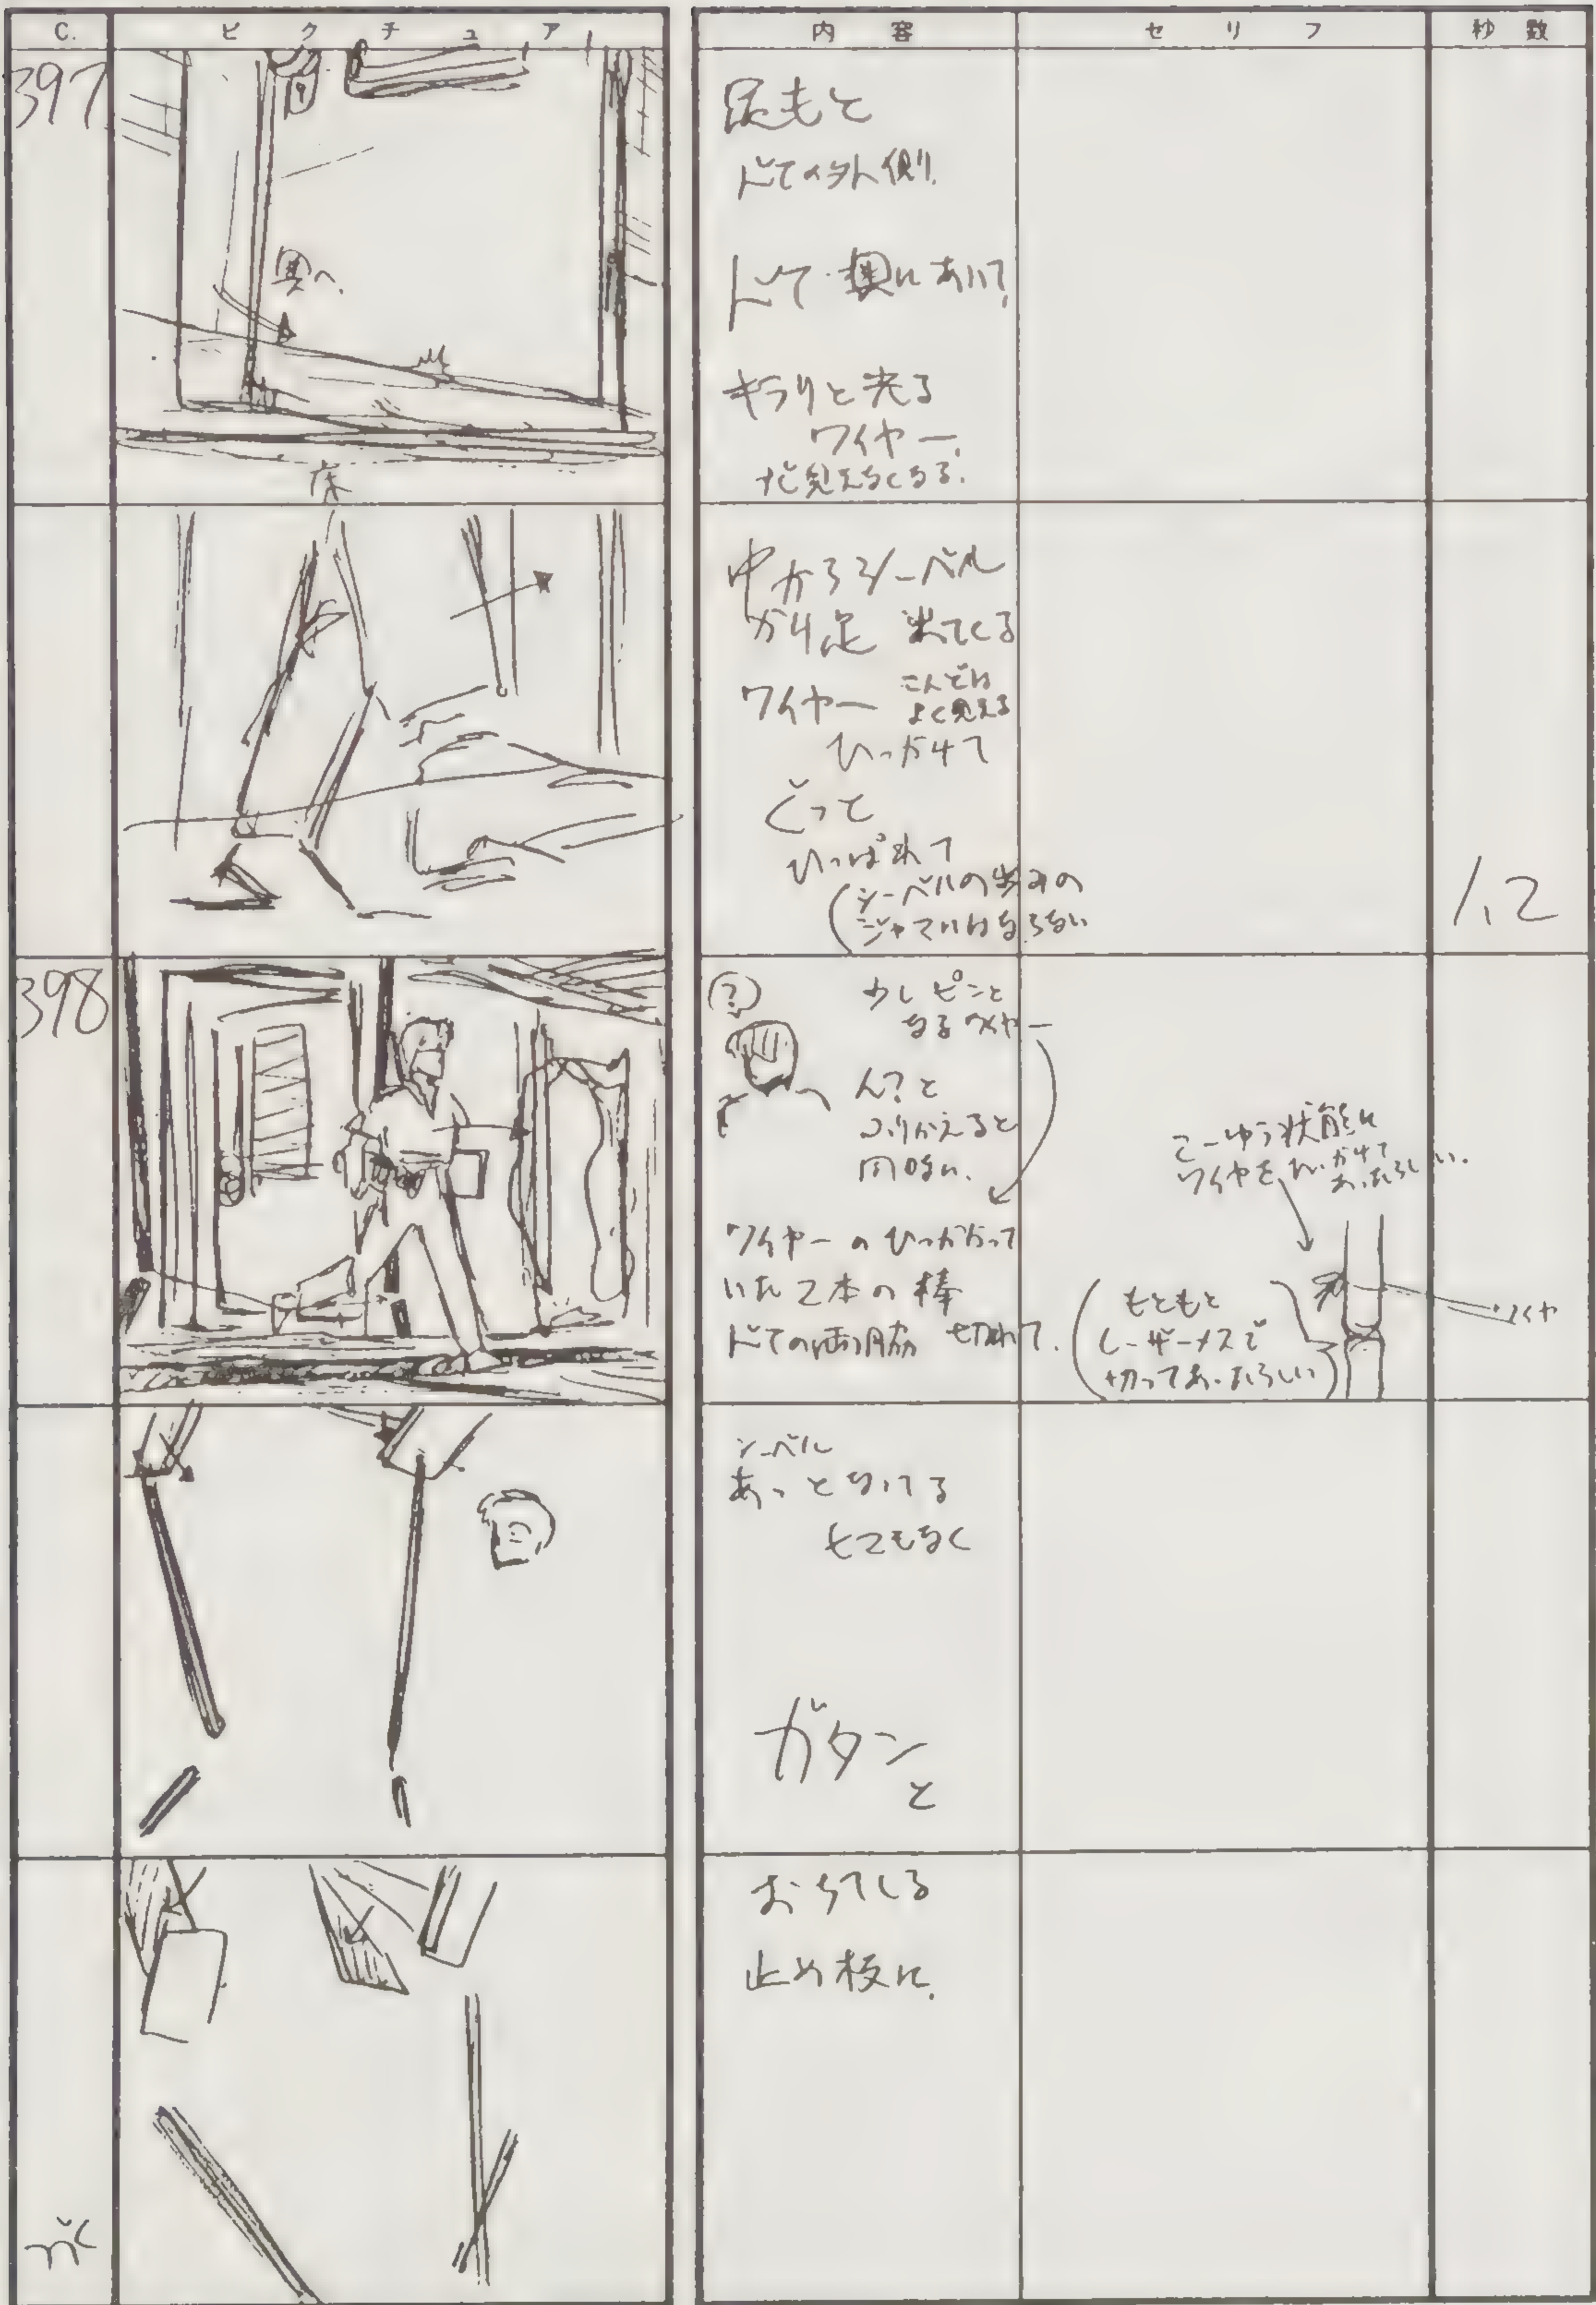 C.
ピクチュア
内容
セリフ
秒数
397
奥へ.
床
足もと
ドアの外側.
ドア・奥にあいて
キラリと光る
ワイヤー.
すぐ見えなくなる.
中からシーベル
かり足 出てくる
ワイヤー こんどは
よく見える
ひっかけて
ぐっと
ひっぱれて
(シーベルの歩みの
ジャマにはならない
1.2
398
(?)
少しピンと
なるワイヤー
ん?と
ふりかえると
同時に.
ワイヤーのひっかかって
いた2本の棒
ドアの両脇 切れて.
こーゆう状態に
ワイヤをひっかけて
あったらしい.
(もともと
レーザーメスで
切ってあったらしい)
ワイヤ
シーベル
あっとないてる
ヒマもなく
ガタン
と
おちてくる
止め板に.